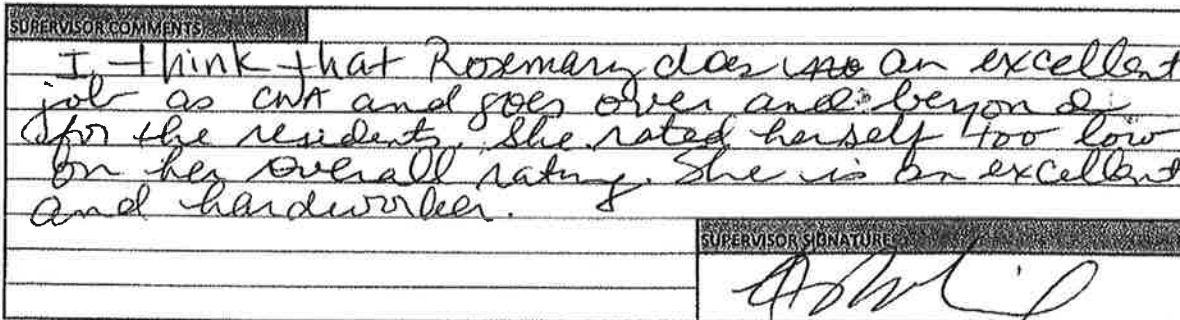 SUPERVISOR COMMENTS
I think that Rosemary does an excellent
job as CNA and goes over and beyond
for the residents. She rated herself too low
on her overall rating. She is an excellent
and hardworker.
SUPERVISOR SIGNATURE